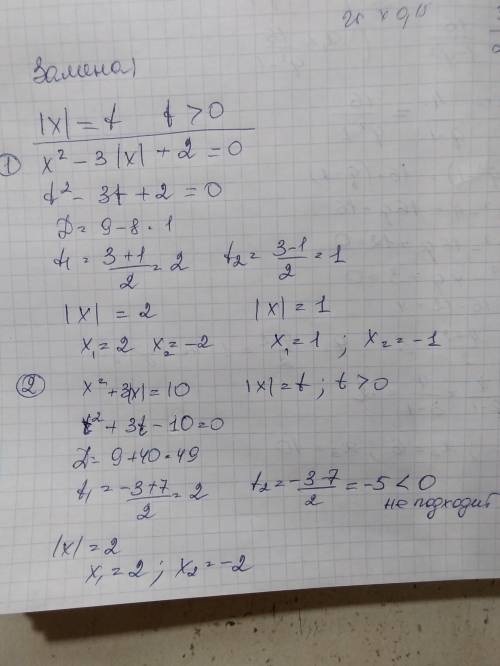 Замена)
|x| = t t > 0
① x² - 3|x| + 2 = 0
t² - 3t + 2 = 0
D = 9 - 8 = 1
t₁ = (3+1)/2 = 2 t₂ = (3-1)/2 = 1
|x| = 2 |x| = 1
x₁ = 2 x₂ = -2 x₁ = 1 ; x₂ = -1
② x² + 3|x| = 10 |x| = t ; t > 0
t² + 3t - 10 = 0
D = 9 + 40 = 49
t₁ = (-3+7)/2 = 2 t₂ = (-3-7)/2 = -5 < 0
не подходит
|x| = 2
x₁ = 2 ; x₂ = -2